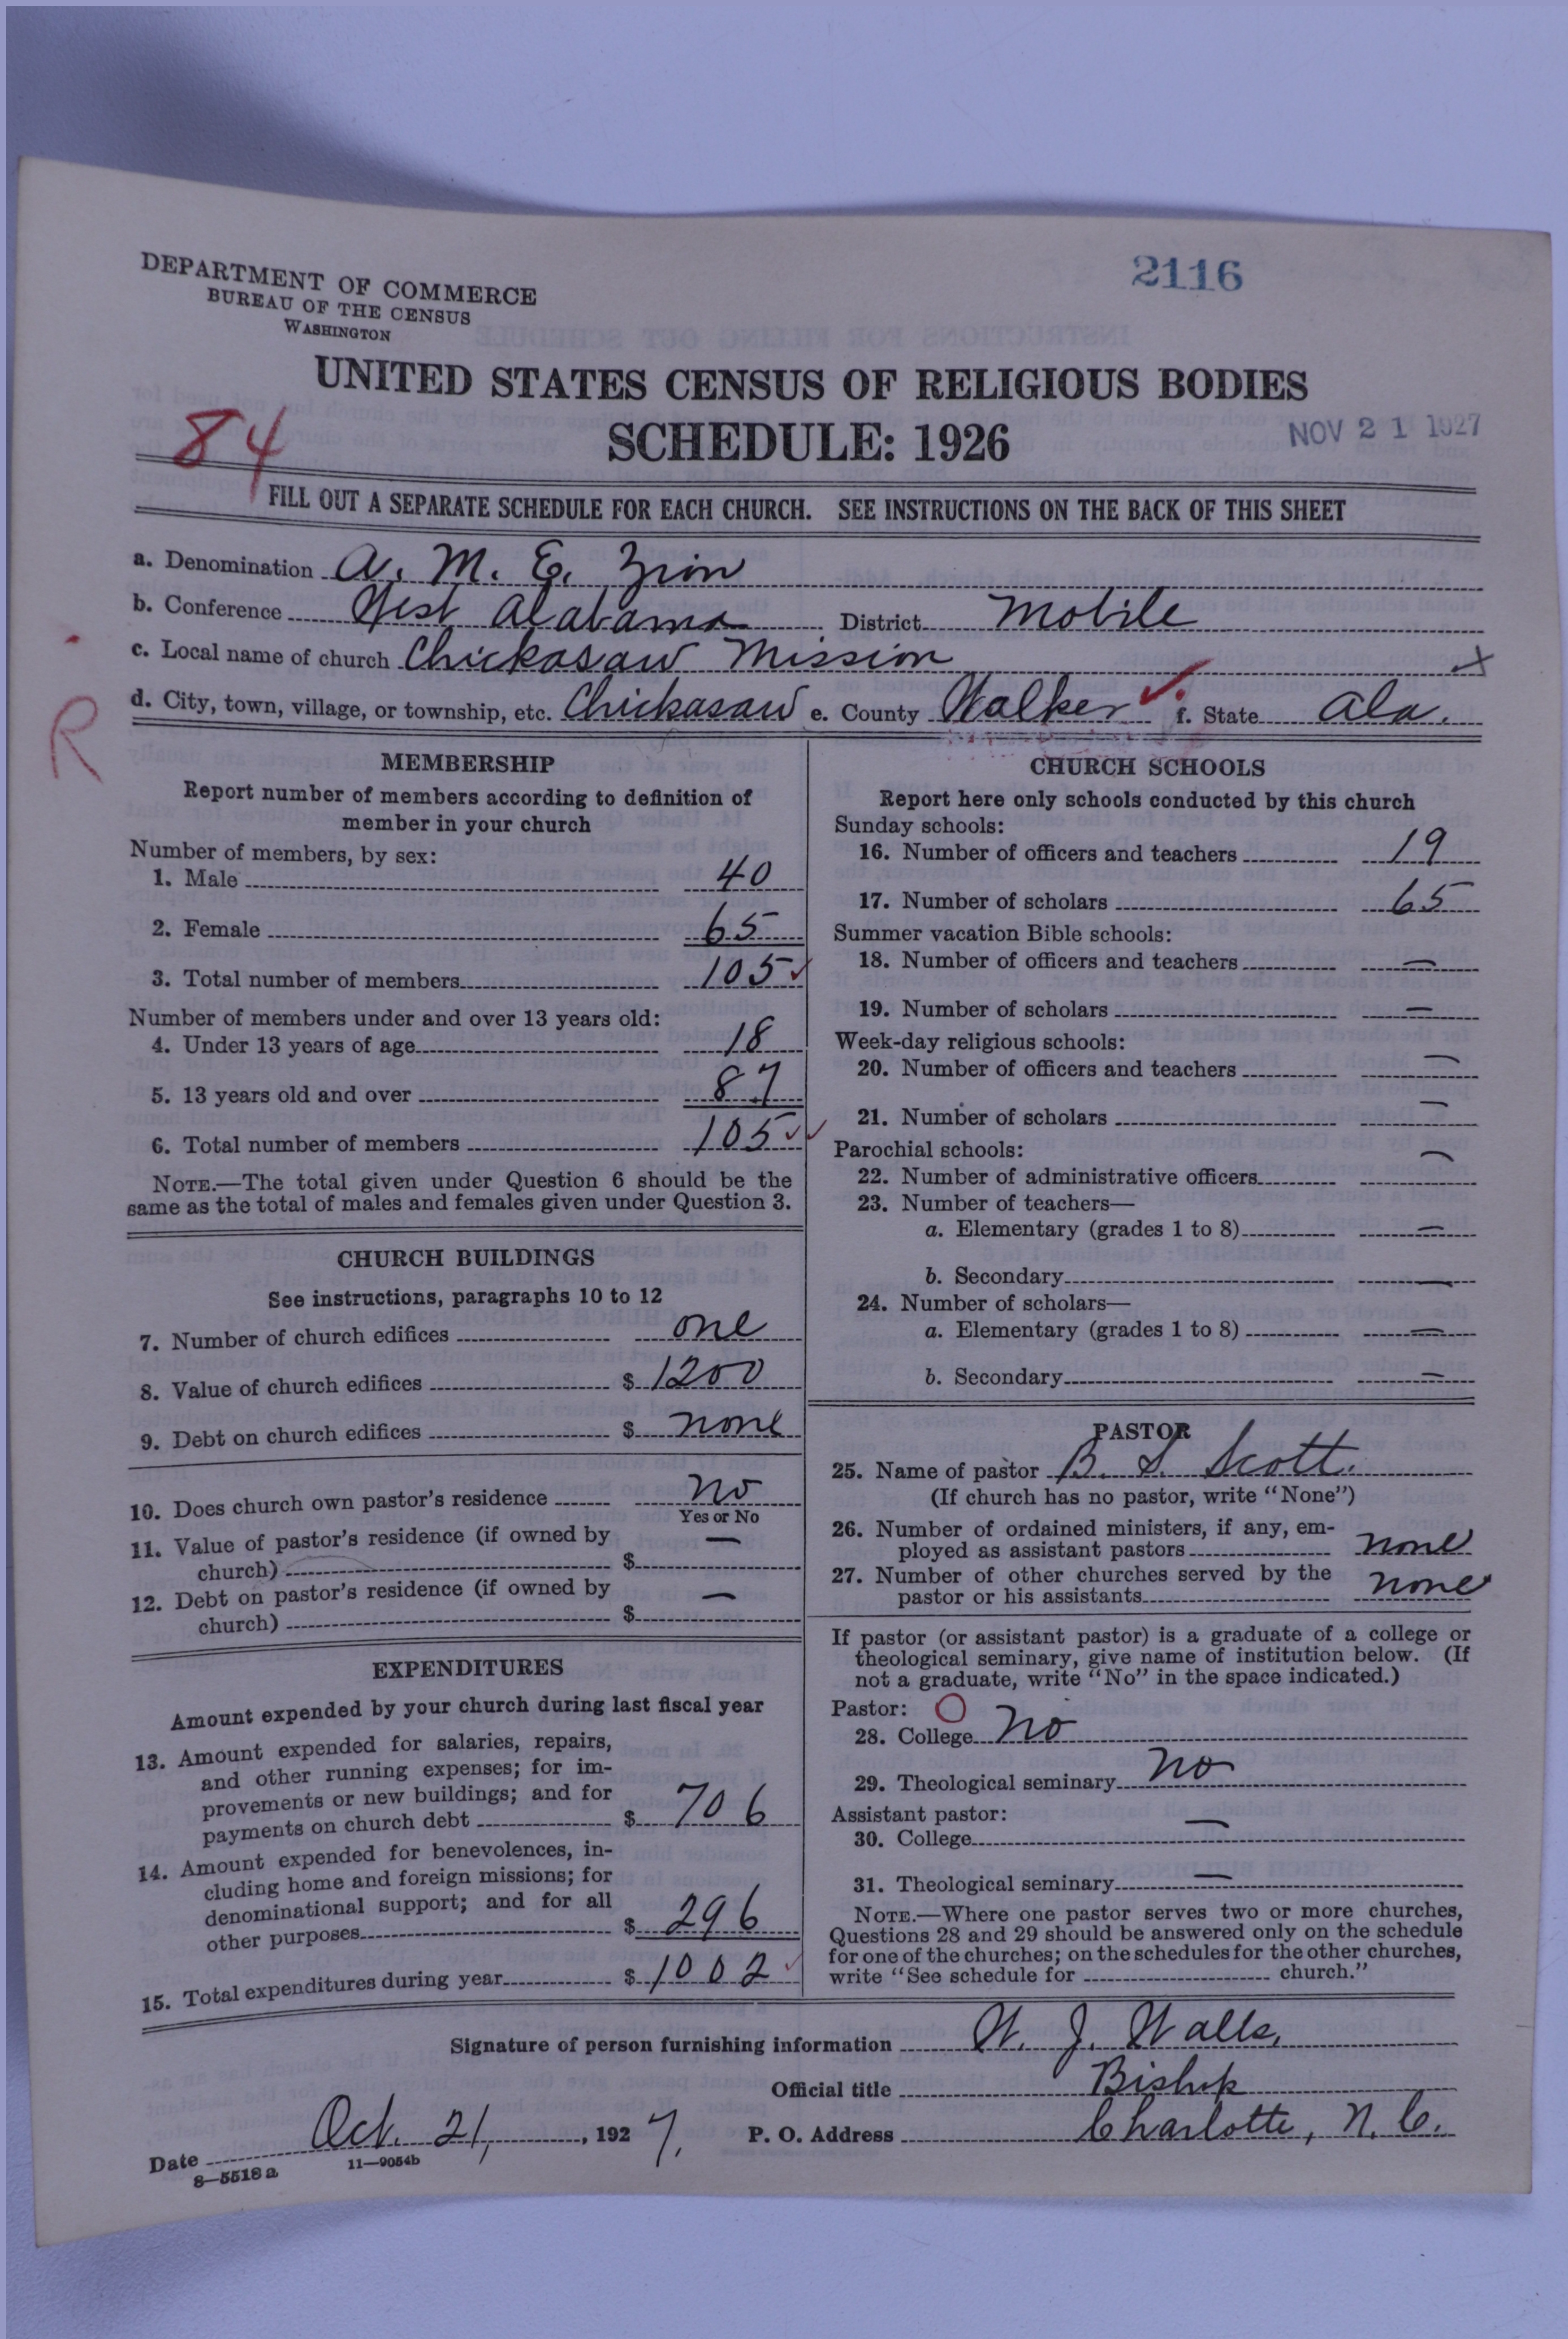 DEPARTMENT OF COMMERCE
BUREAU OF THE CENSUS
WASHINGTON
2116
UNITED STATES CENSUS OF RELIGIOUS BODIES
SCHEDULE: 1926
NOV 21 1927
84
FILL OUT A SEPARATE SCHEDULE FOR EACH CHURCH. SEE INSTRUCTIONS ON THE BACK OF THIS SHEET
a. Denomination A. M. E. Zion
b. Conference West Alabama District Mobile
c. Local name of church Chickasaw Mission x
d. City, town, village, or township, etc. Chickasaw e. County Walker ✓ f. State Ala.
R
MEMBERSHIP
Report number of members according to definition of
member in your church
Number of members, by sex:
1. Male 40
2. Female 65
3. Total number of members 105 ✓
Number of members under and over 13 years old:
4. Under 13 years of age 18
5. 13 years old and over 87
6. Total number of members 105 ✓✓
NOTE.—The total given under Question 6 should be the
same as the total of males and females given under Question 3.
CHURCH BUILDINGS
See instructions, paragraphs 10 to 12
7. Number of church edifices one
8. Value of church edifices $ 1200
9. Debt on church edifices $ none
10. Does church own pastor's residence No
Yes or No
11. Value of pastor's residence (if owned by
church) $ —
12. Debt on pastor's residence (if owned by
church) $ —
EXPENDITURES
Amount expended by your church during last fiscal year
13. Amount expended for salaries, repairs,
and other running expenses; for im-
provements or new buildings; and for
payments on church debt $ 706
14. Amount expended for benevolences, in-
cluding home and foreign missions; for
denominational support; and for all
other purposes $ 296
15. Total expenditures during year $ 1002 ✓
CHURCH SCHOOLS
Report here only schools conducted by this church
Sunday schools:
16. Number of officers and teachers 19
17. Number of scholars 65
Summer vacation Bible schools:
18. Number of officers and teachers —
19. Number of scholars —
Week-day religious schools:
20. Number of officers and teachers —
21. Number of scholars —
Parochial schools:
22. Number of administrative officers —
23. Number of teachers—
a. Elementary (grades 1 to 8) —
b. Secondary —
24. Number of scholars—
a. Elementary (grades 1 to 8) —
b. Secondary —
PASTOR
25. Name of pastor B. S. Scott.
(If church has no pastor, write "None")
26. Number of ordained ministers, if any, em-
ployed as assistant pastors none
27. Number of other churches served by the
pastor or his assistants none
If pastor (or assistant pastor) is a graduate of a college or
theological seminary, give name of institution below. (If
not a graduate, write "No" in the space indicated.)
Pastor: O
28. College No
29. Theological seminary No
Assistant pastor:
30. College —
31. Theological seminary —
NOTE.—Where one pastor serves two or more churches,
Questions 28 and 29 should be answered only on the schedule
for one of the churches; on the schedules for the other churches,
write "See schedule for church."
Signature of person furnishing information W. J. Walls,
Official title Bishop
Date Oct. 21, 1927. P. O. Address Charlotte, N. C.
8—5518a 11—9054b